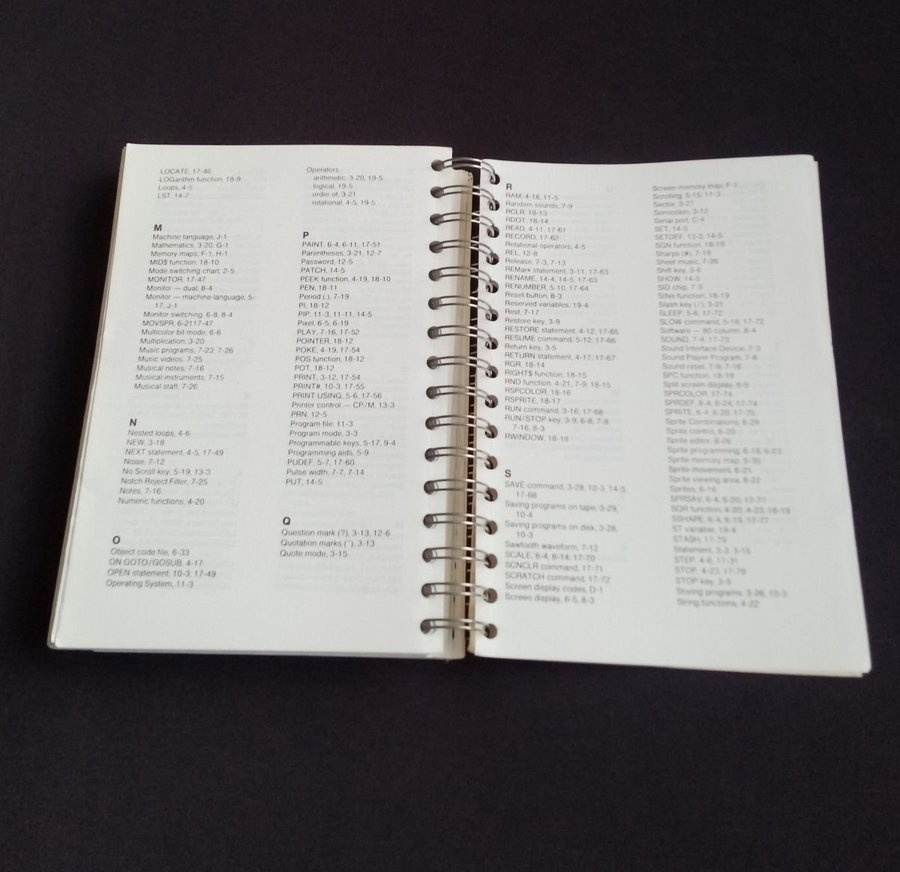 LOCATE, 17-46
LOGarithm function, 18-9
Loops, 4-5
LST, 14-7
M
Machine language, J-1
Mathematics, 3-20, G-1
Memory maps, F-1, H-1
MID$ function, 18-10
Mode switching chart, 2-5
MONITOR, 17-47
Monitor — dual, 8-4
Monitor — machine language, 5-
17, J-1
Monitor switching, 6-8, 8-4
MOVSPR, 6-2117-47
Multicolor bit mode, 6-6
Multiplication, 3-20
Music programs, 7-23, 7-26
Music videos, 7-25
Musical notes, 7-16
Musical instruments, 7-15
Musical staff, 7-26
N
Nested loops, 4-6
NEW, 3-18
NEXT statement, 4-5, 17-49
Noise, 7-12
No Scroll key, 5-19, 13-3
Notch Reject Filter, 7-25
Notes, 7-16
Numeric functions, 4-20
O
Object code file, 6-33
ON GOTO/GOSUB, 4-17
OPEN statement, 10-3, 17-49
Operating System, 11-3
Operators,
arithmetic, 3-20, 19-5
logical, 19-5
order of, 3-21
rotational, 4-5, 19-5
P
PAINT, 6-4, 6-11, 17-51
Parentheses, 3-21, 12-7
Password, 12-5
PATCH, 14-5
PEEK function, 4-19, 18-10
PEN, 18-11
Period (.), 7-19
PI, 18-12
PIP, 11-3, 11-11, 14-5
Pixel, 6-5, 6-19
PLAY, 7-16, 17-52
POINTER, 18-12
POKE, 4-19, 17-54
POS function, 18-12
POT, 18-12
PRINT, 3-12, 17-54
PRINT#, 10-3, 17-55
PRINT USING, 5-6, 17-56
Printer control — CP/M, 13-3
PRN, 12-5
Program file, 11-3
Program mode, 3-3
Programmable keys, 5-17, 9-4
Programming aids, 5-9
PUDEF, 5-7, 17-60
Pulse width, 7-7, 7-14
PUT, 14-5
Q
Question mark (?), 3-13, 12-6
Quotation marks (''), 3-13
Quote mode, 3-15
R
RAM, 4-18, 11-5
Random sounds, 7-9
RCLR, 18-13
RDOT, 18-14
READ, 4-11, 17-61
RECORD, 17-62
Relational operators, 4-5
REL, 12-8
Release, 7-3, 7-13
REMark statement, 3-11, 17-63
RENAME, 14-4, 14-5, 17-63
RENUMBER, 5-10, 17-64
Reset button, 8-3
Reserved variables, 19-4
Rest, 7-17
Restore key, 3-9
RESTORE statement, 4-12, 17-65
RESUME command, 5-12, 17-66
Return key, 3-5
RETURN statement, 4-17, 17-67
RGR, 18-14
RIGHT$ function, 18-15
RND function, 4-21, 7-9, 18-15
RSPCOLOR, 18-16
RSPRITE, 18-17
RUN command, 3-16, 17-68
RUN/STOP key, 3-9, 6-8, 7-9,
7-16, 8-3
RWINDOW, 18-18
S
SAVE command, 3-28, 10-3, 14-5,
17-68
Saving programs on tape, 3-29,
10-4
Saving programs on disk, 3-28,
10-3
Sawtooth waveform, 7-12
SCALE, 6-4, 6-14, 17-70
SCNCLR command, 17-71
SCRATCH command, 17-72
Screen display codes, D-1
Screen display, 6-5, 8-3
Screen memory map, F-1
Scrolling, 5-15, 11-3
Sector, 3-27
Semicolon, 3-12
Serial port, C-4
SET, 14-5
SETDEF, 13-3, 14-5
SGN function, 18-18
Sharps (#), 7-19
Sheet music, 7-26
Shift key, 3-6
SHOW, 14-5
SID chip, 7-3
SINe function, 18-19
Slash key (/), 3-21
SLEEP, 5-6, 17-72
SLOW command, 5-16, 17-72
Software — 80 column, 8-4
SOUND, 7-4, 17-73
Sound Interface Device, 7-3
Sound Player Program, 7-8
Sound reset, 7-9, 7-16
SPC function, 18-19
Split screen display, 6-5
SPRCOLOR, 17-74
SPRDEF, 6-4, 6-24, 17-74
SPRITE, 6-4, 6-28, 17-75
Sprite Combinations, 6-28
Sprite control, 6-20
Sprite editor, 6-26
Sprite programming, 6-16, 6-23
Sprite memory map, 6-35
Sprite movement, 6-21
Sprite viewing area, 6-22
Sprites, 6-16
SPRSAV, 6-4, 6-20, 17-77
SQR function, 4-20, 4-23, 18-19
SSHAPE, 6-4, 6-19, 17-77
ST variable, 19-4
STASH, 17-79
Statement, 3-3, 3-15
STEP, 4-6, 17-31
STOP, 4-23, 17-79
STOP key, 3-9
Storing programs, 3-28, 10-3
String functions, 4-22